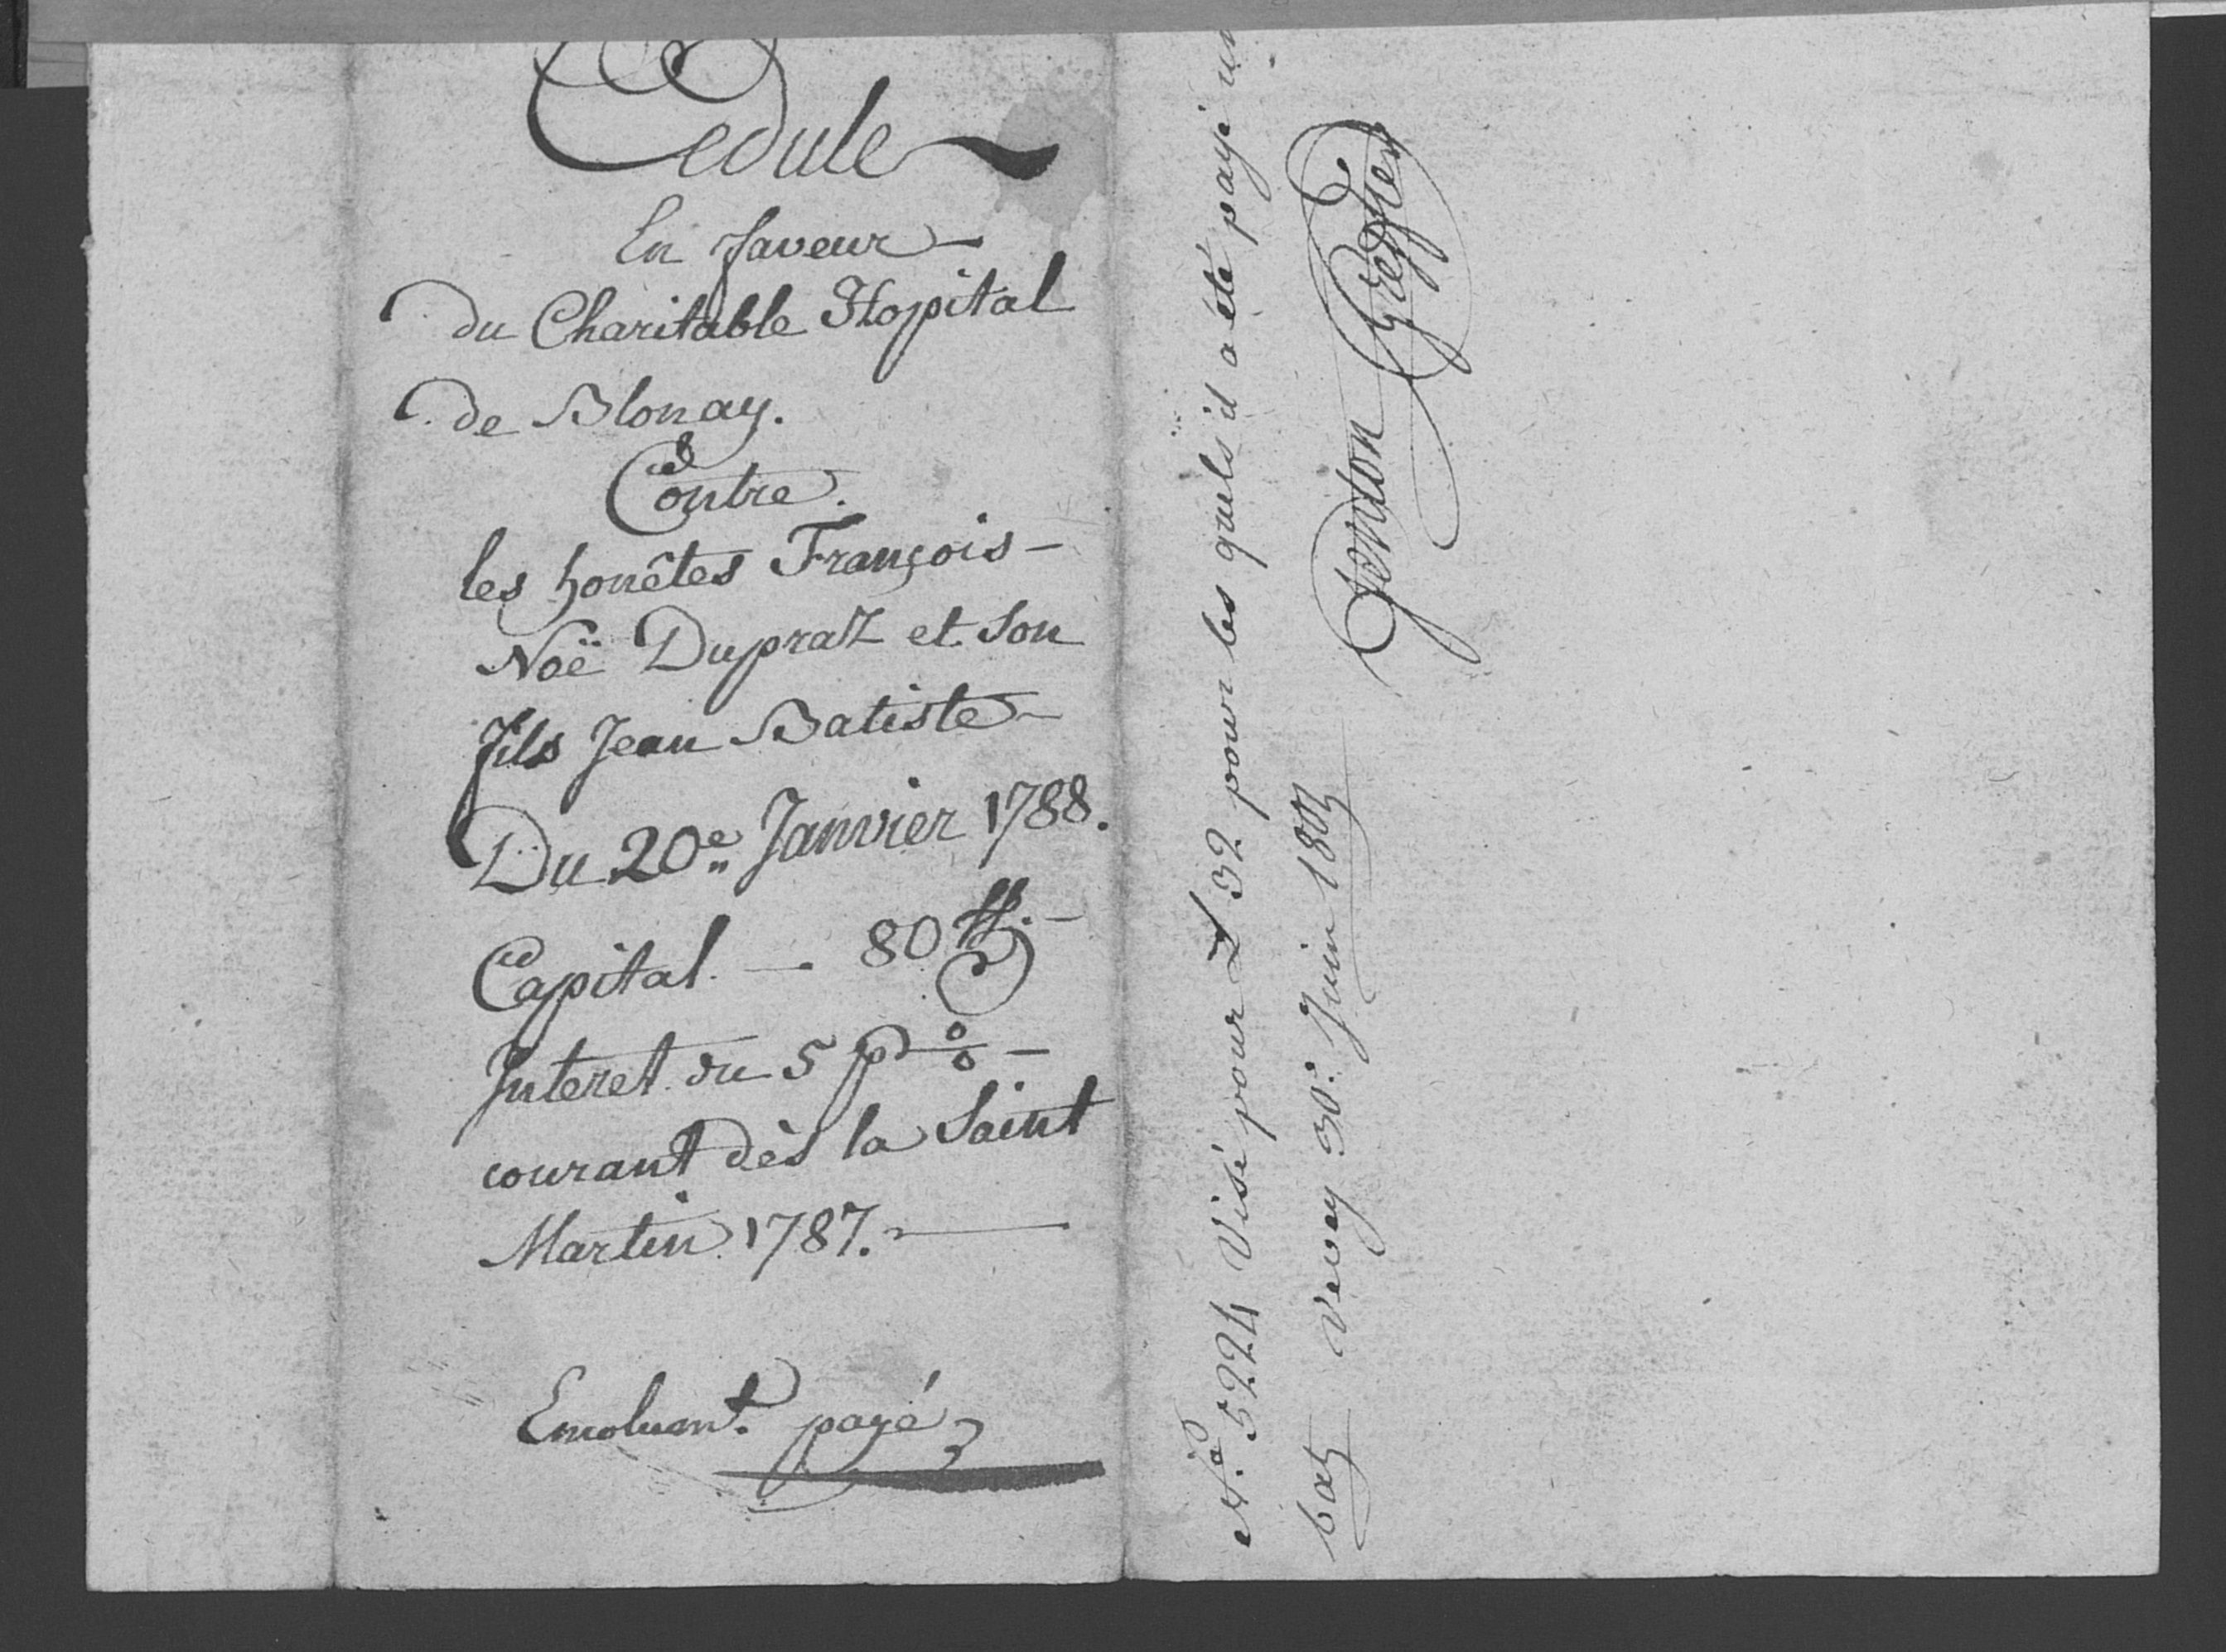 Cedule
En faveur
du Charitable Hopital
de Blonay.
Contre.
les honêtes François-
Noë Dupraz et son
fils Jean Batiste
Du 20e. Janvier 1788.
Capital. — 80 ff. —
Interet du 5 p % —
courant dès la Saint
Martin 1787. —
Emolumt. payé
No. 5224 Visé pour L 32 pour les quels il a été payé un
batz Vevey 30e. Juin 1803 Greffier